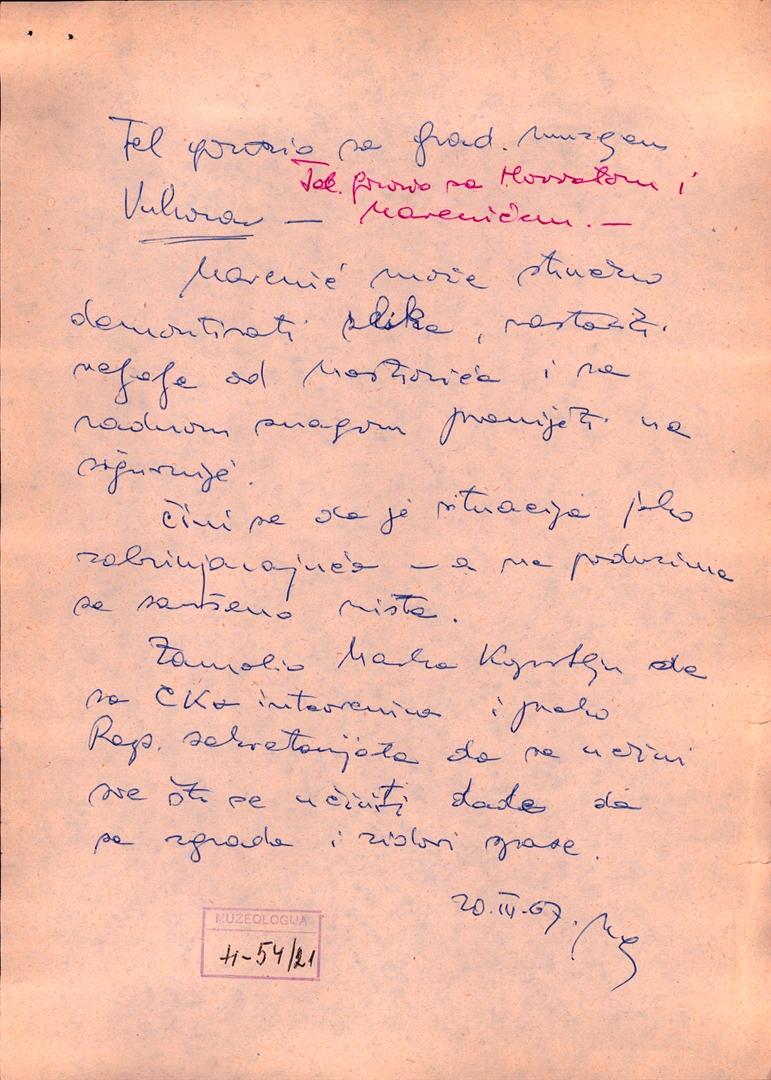 Tel govorio sa grad. muzejem
Tel. govorio sa Horvatom i
Vukovar — Marenićem. —
Marenić može stručno
demontirati slike, rastaviti
od i sa
radnom snagom prenijeti na
sigurnije.
Čini se da je situacija jako
zabrinjavajuća — a ne poduzima
se savršeno ništa.
Zamolio Marka da
sa ČKa intervenira i preko
Rep. sekretarijata da se učini
sve što se učiniti dade da
se zgrada i zidovi spase.
20.III.67.
MUZEOLOGIJA
H-54/21